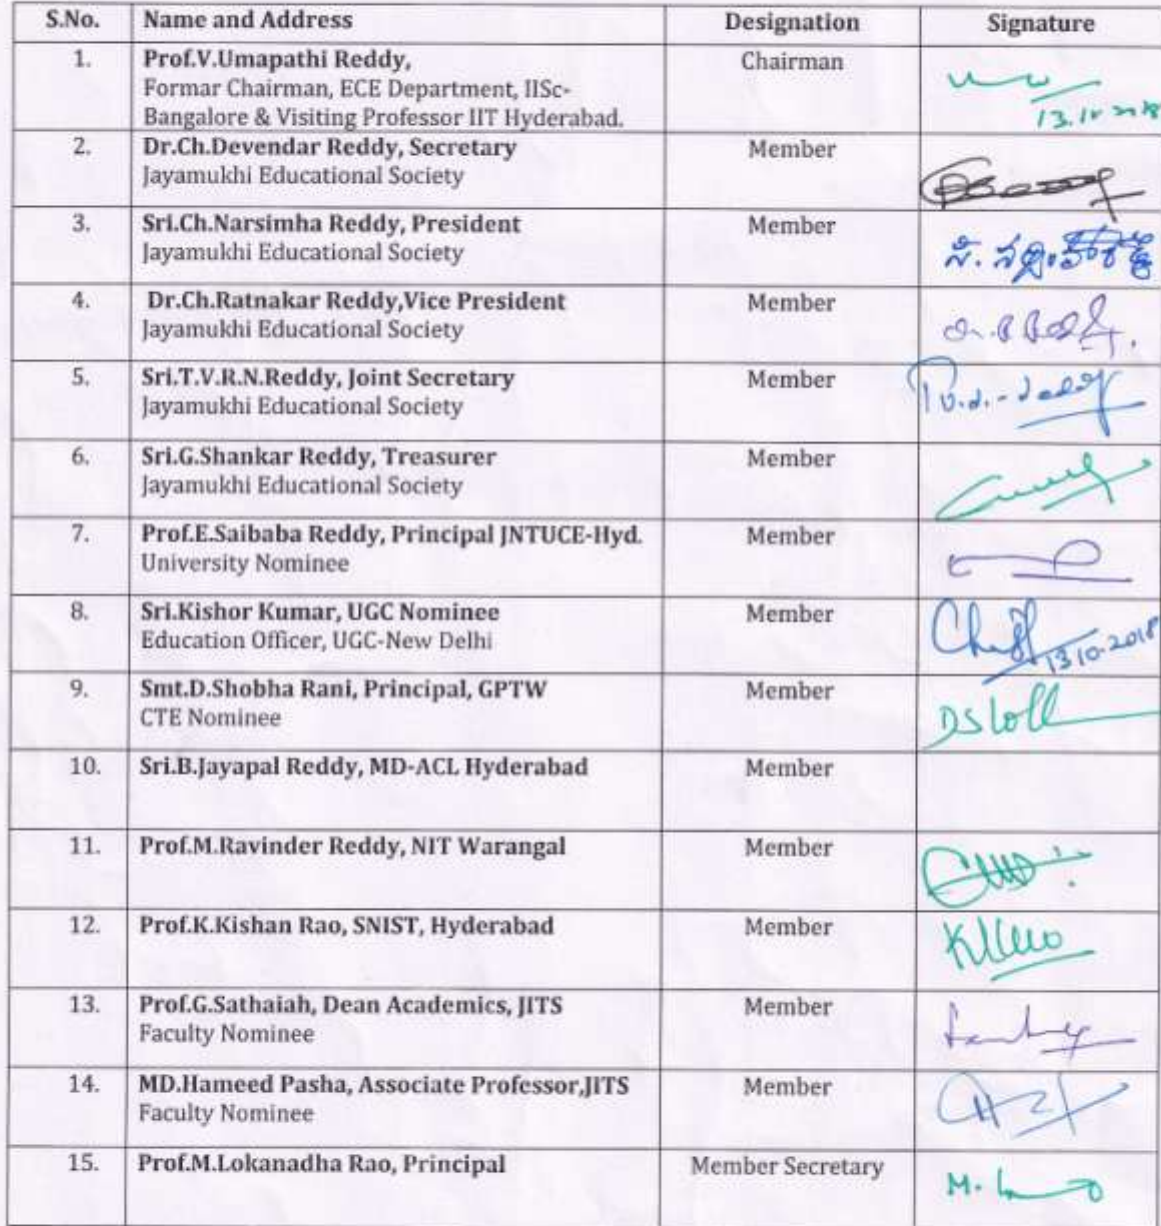 S.No. Name and Address Designation Signature
1. Prof.V.Umapathi Reddy, Chairman
Formar Chairman, ECE Department, IISc-
Bangalore & Visiting Professor IIT Hyderabad.
2. Dr.Ch.Devendar Reddy, Secretary Member
Jayamukhi Educational Society
3. Sri.Ch.Narsimha Reddy, President Member
Jayamukhi Educational Society
4. Dr.Ch.Ratnakar Reddy,Vice President Member
Jayamukhi Educational Society
5. Sri.T.V.R.N.Reddy, Joint Secretary Member
Jayamukhi Educational Society
6. Sri.G.Shankar Reddy, Treasurer Member
Jayamukhi Educational Society
7. Prof.E.Saibaba Reddy, Principal JNTUCE-Hyd. Member
University Nominee
8. Sri.Kishor Kumar, UGC Nominee Member
Education Officer, UGC-New Delhi 13.10.2018
9. Smt.D.Shobha Rani, Principal, GPTW Member
CTE Nominee
10. Sri.B.Jayapal Reddy, MD-ACL Hyderabad Member
11. Prof.M.Ravinder Reddy, NIT Warangal Member
12. Prof.K.Kishan Rao, SNIST, Hyderabad Member
13. Prof.G.Sathaiah, Dean Academics, JITS Member
Faculty Nominee
14. MD.Hameed Pasha, Associate Professor,JITS Member
Faculty Nominee
15. Prof.M.Lokanadha Rao, Principal Member Secretary